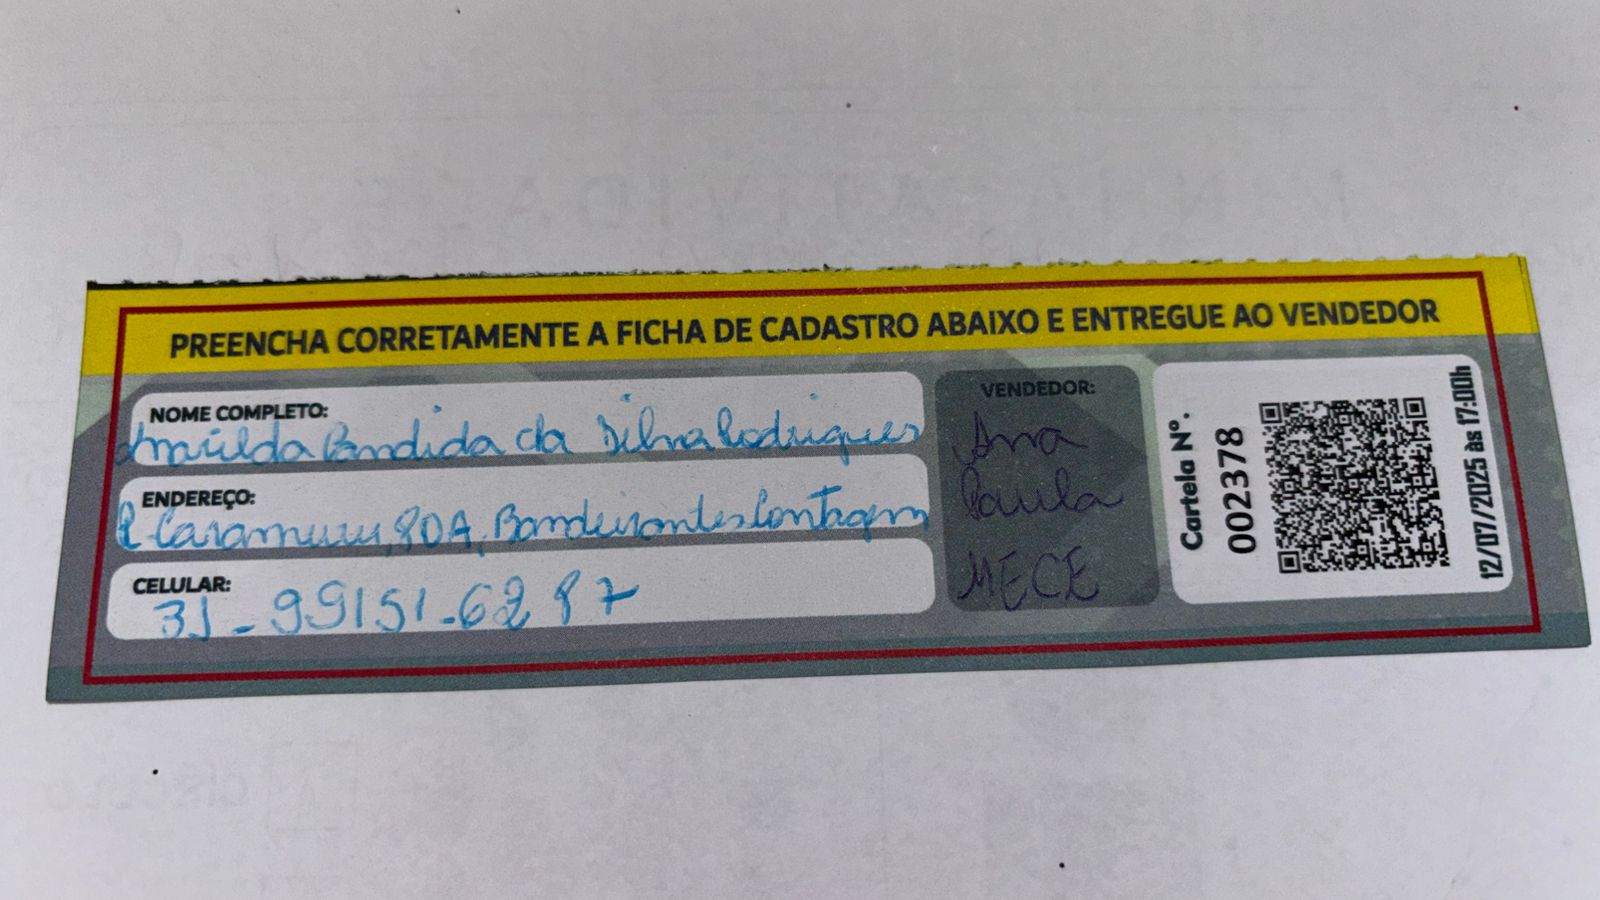 PREENCHA CORRETAMENTE A FICHA DE CADASTRO ABAIXO E ENTREGUE AO VENDEDOR
NOME COMPLETO:
Candida da Silva Rodrigues
ENDEREÇO:
R. Caramuru, Bandeirantes Contagem
CELULAR:
31-99151-6287
VENDEDOR:
Ana
Paula
MECE
Cartela Nº.
002378
12/07/2025 às 17:00h